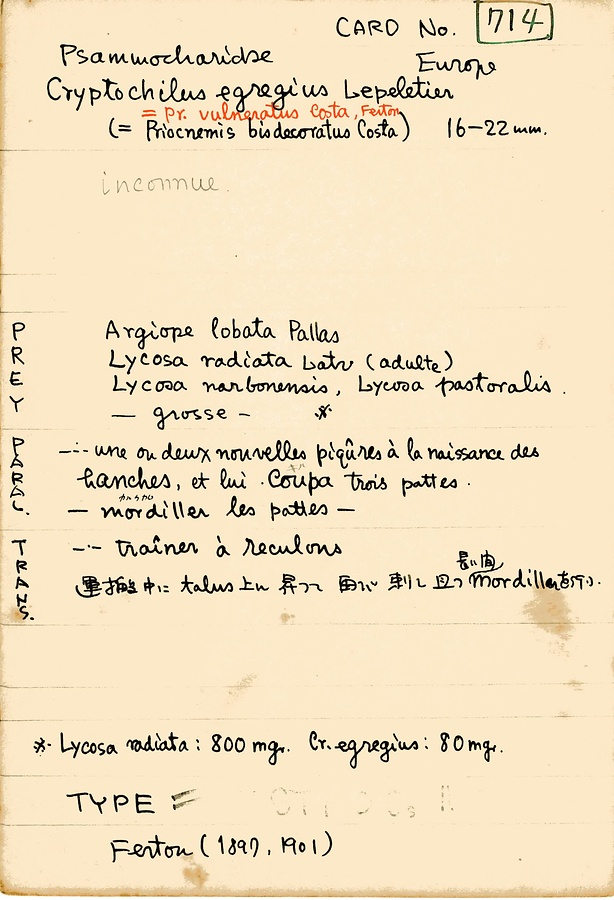 CARD No. 714
Psammocharidae Europe
Cryptochilus egregius Lepeletier
= Pr. vulneratus Costa, Ferton
(= Priocnemis bisdecoratus Costa) 16-22 mm.
inconnue.
PREY
Argiope lobata Pallas
Lycosa radiata Latr (adulte)
Lycosa narbonensis, Lycosa pastoralis.
— grosse — ※
PARAL.
—·– une ou deux nouvelles piqûres à la naissance des
hanches, et lui coupa trois pattes.
— mordiller les pattes —
TRANS.
—·– traîner à reculons
長い間
運搬中に talus上に昇って 再び刺し且つ mordillerを行う.
※ Lycosa radiata: 800 mgr. Cr. egregius: 80 mgr.
TYPE =
Ferton (1897, 1901)